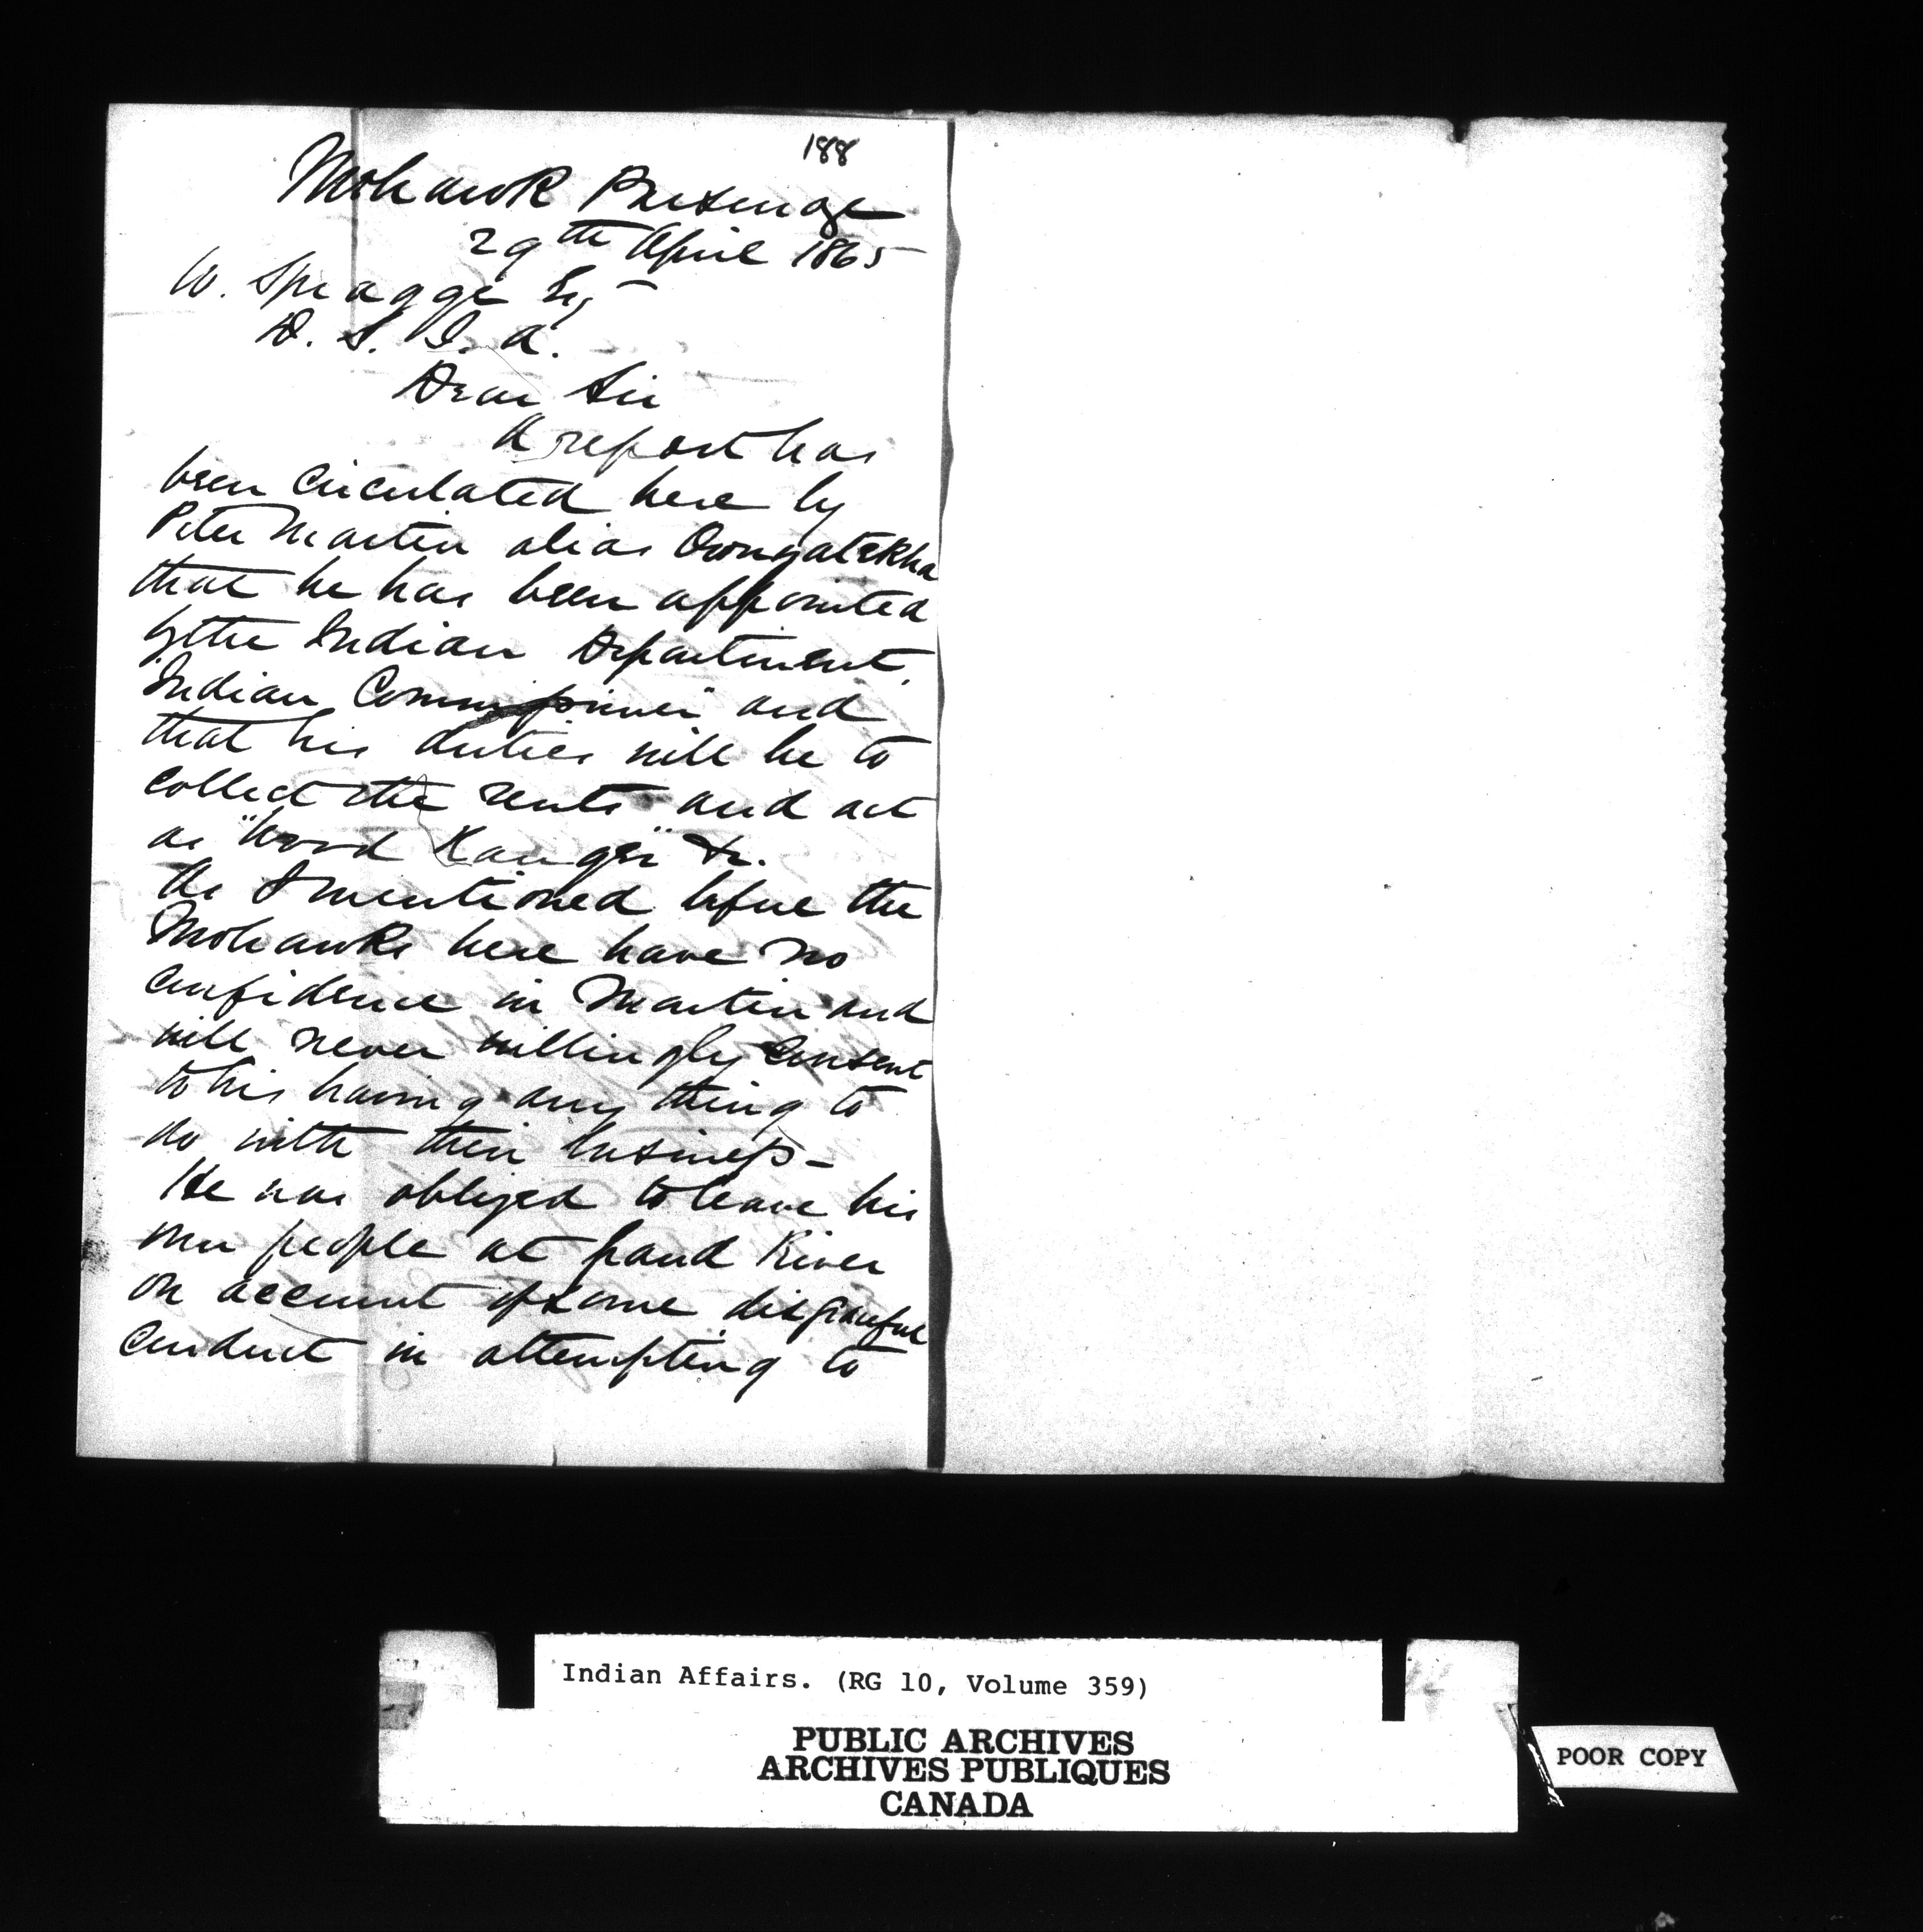 188
Mohawk Parsonage
29th April 1865
W. Spragge Esq
D. S. I. A.
Dear Sir
A report has
been circulated here by
Peter Martin alias Oronyatekha
that he has been appointed
by the Indian Department,
Indian Commissioner and
that his duties will be to
collect the rents and act
as "Wood Ranger" &c.
As I mentioned before the
Mohawks here have no
confidence in Martin and
will never willingly consent
to his having any thing to
do with their business -
He was obliged to leave his
own people at Grand River
on account of some disgraceful
conduct in attempting to
Indian Affairs. (RG 10, Volume 359)
PUBLIC ARCHIVES
ARCHIVES PUBLIQUES
CANADA
POOR COPY